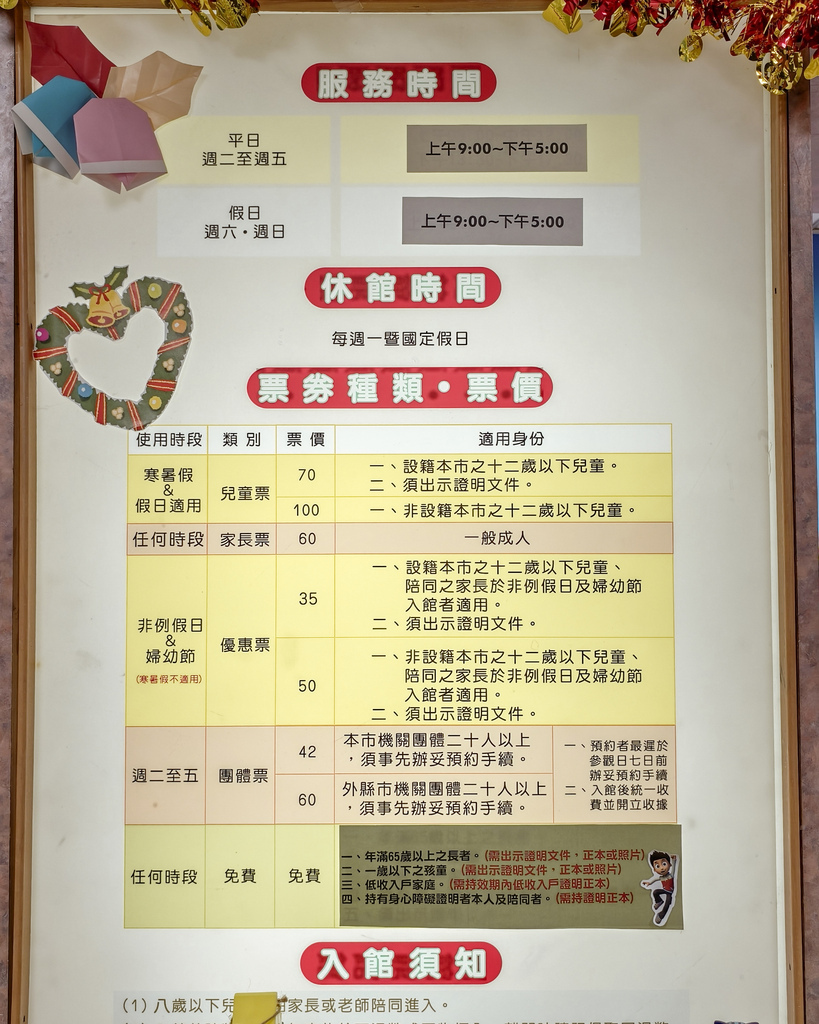 服務時間
平日
週二至週五
上午9:00~下午5:00
假日
週六・週日
上午9:00~下午5:00
休館時間
每週一暨國定假日
票券種類・票價
使用時段 類別 票價 適用身份
寒暑假
&
假日適用
兒童票
70
一、設籍本市之十二歲以下兒童。
二、須出示證明文件。
100
一、非設籍本市之十二歲以下兒童。
任何時段 家長票 60 一般成人
非例假日
&
婦幼節
(寒暑假不適用)
優惠票
35
一、設籍本市之十二歲以下兒童、
陪同之家長於非例假日及婦幼節
入館者適用。
二、須出示證明文件。
50
一、非設籍本市之十二歲以下兒童、
陪同之家長於非例假日及婦幼節
入館者適用。
二、須出示證明文件。
週二至五
團體票
42
本市機關團體二十人以上
，須事先辦妥預約手續。
60
外縣市機關團體二十人以上
，須事先辦妥預約手續。
一、預約者最遲於
參觀日七日前
辦妥預約手續
二、入館後統一收
費並開立收據
任何時段
免費
免費
一、年滿65歲以上之長者。(需出示證明文件，正本或照片)
二、一歲以下之孩童。(需出示證明文件，正本或照片)
三、低收入戶家庭。(需持效期內低收入戶證明正本)
四、持有身心障礙證明者本人及陪同者。(需持證明正本)
入館須知
(1) 八歲以下兒 家長或老師陪同進入。